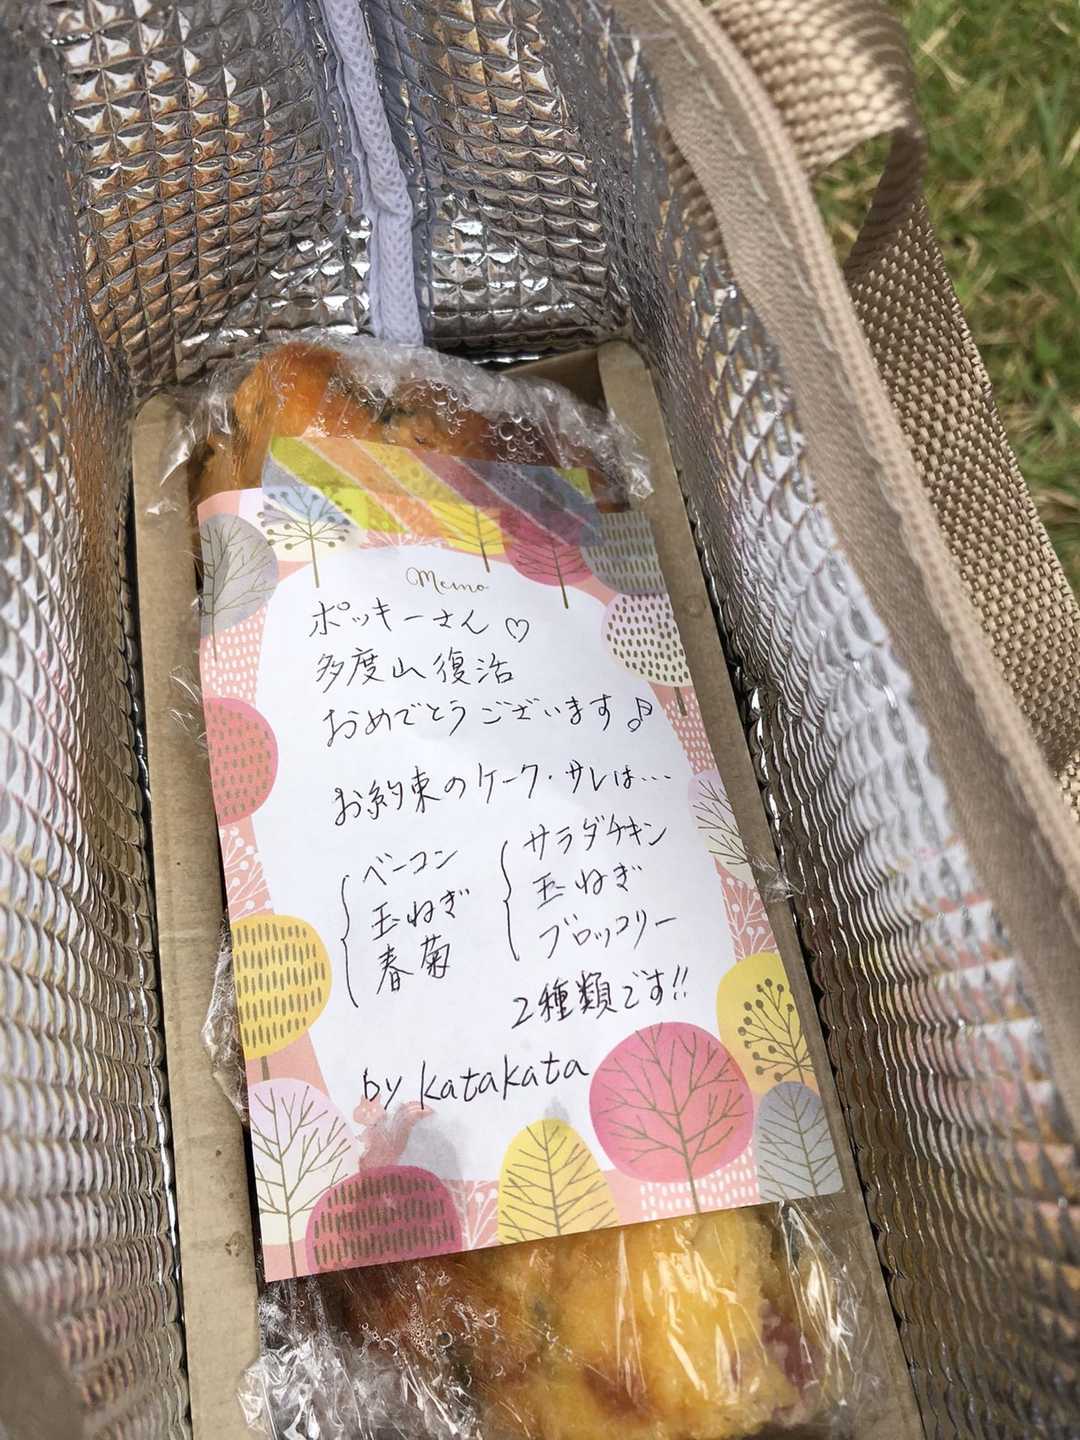 Memo
ポッキーさん♡
多度山復活
おめでとうございます♪
お約束のケーク・サレは…
ベーコン
玉ねぎ
春菊
サラダチキン
玉ねぎ
ブロッコリー
2種類です!!
by katakata